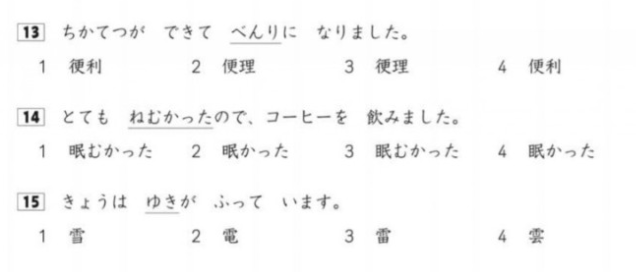 13 ちかてつが できて べんりに なりました。
1 便利 2 便理 3 便理 4 便利
14 とても ねむかったので、コーヒーを 飲みました。
1 眠むかった 2 眠かった 3 眠むかった 4 眠かった
15 きょうは ゆきが ふって います。
1 雪 2 電 3 雷 4 雲